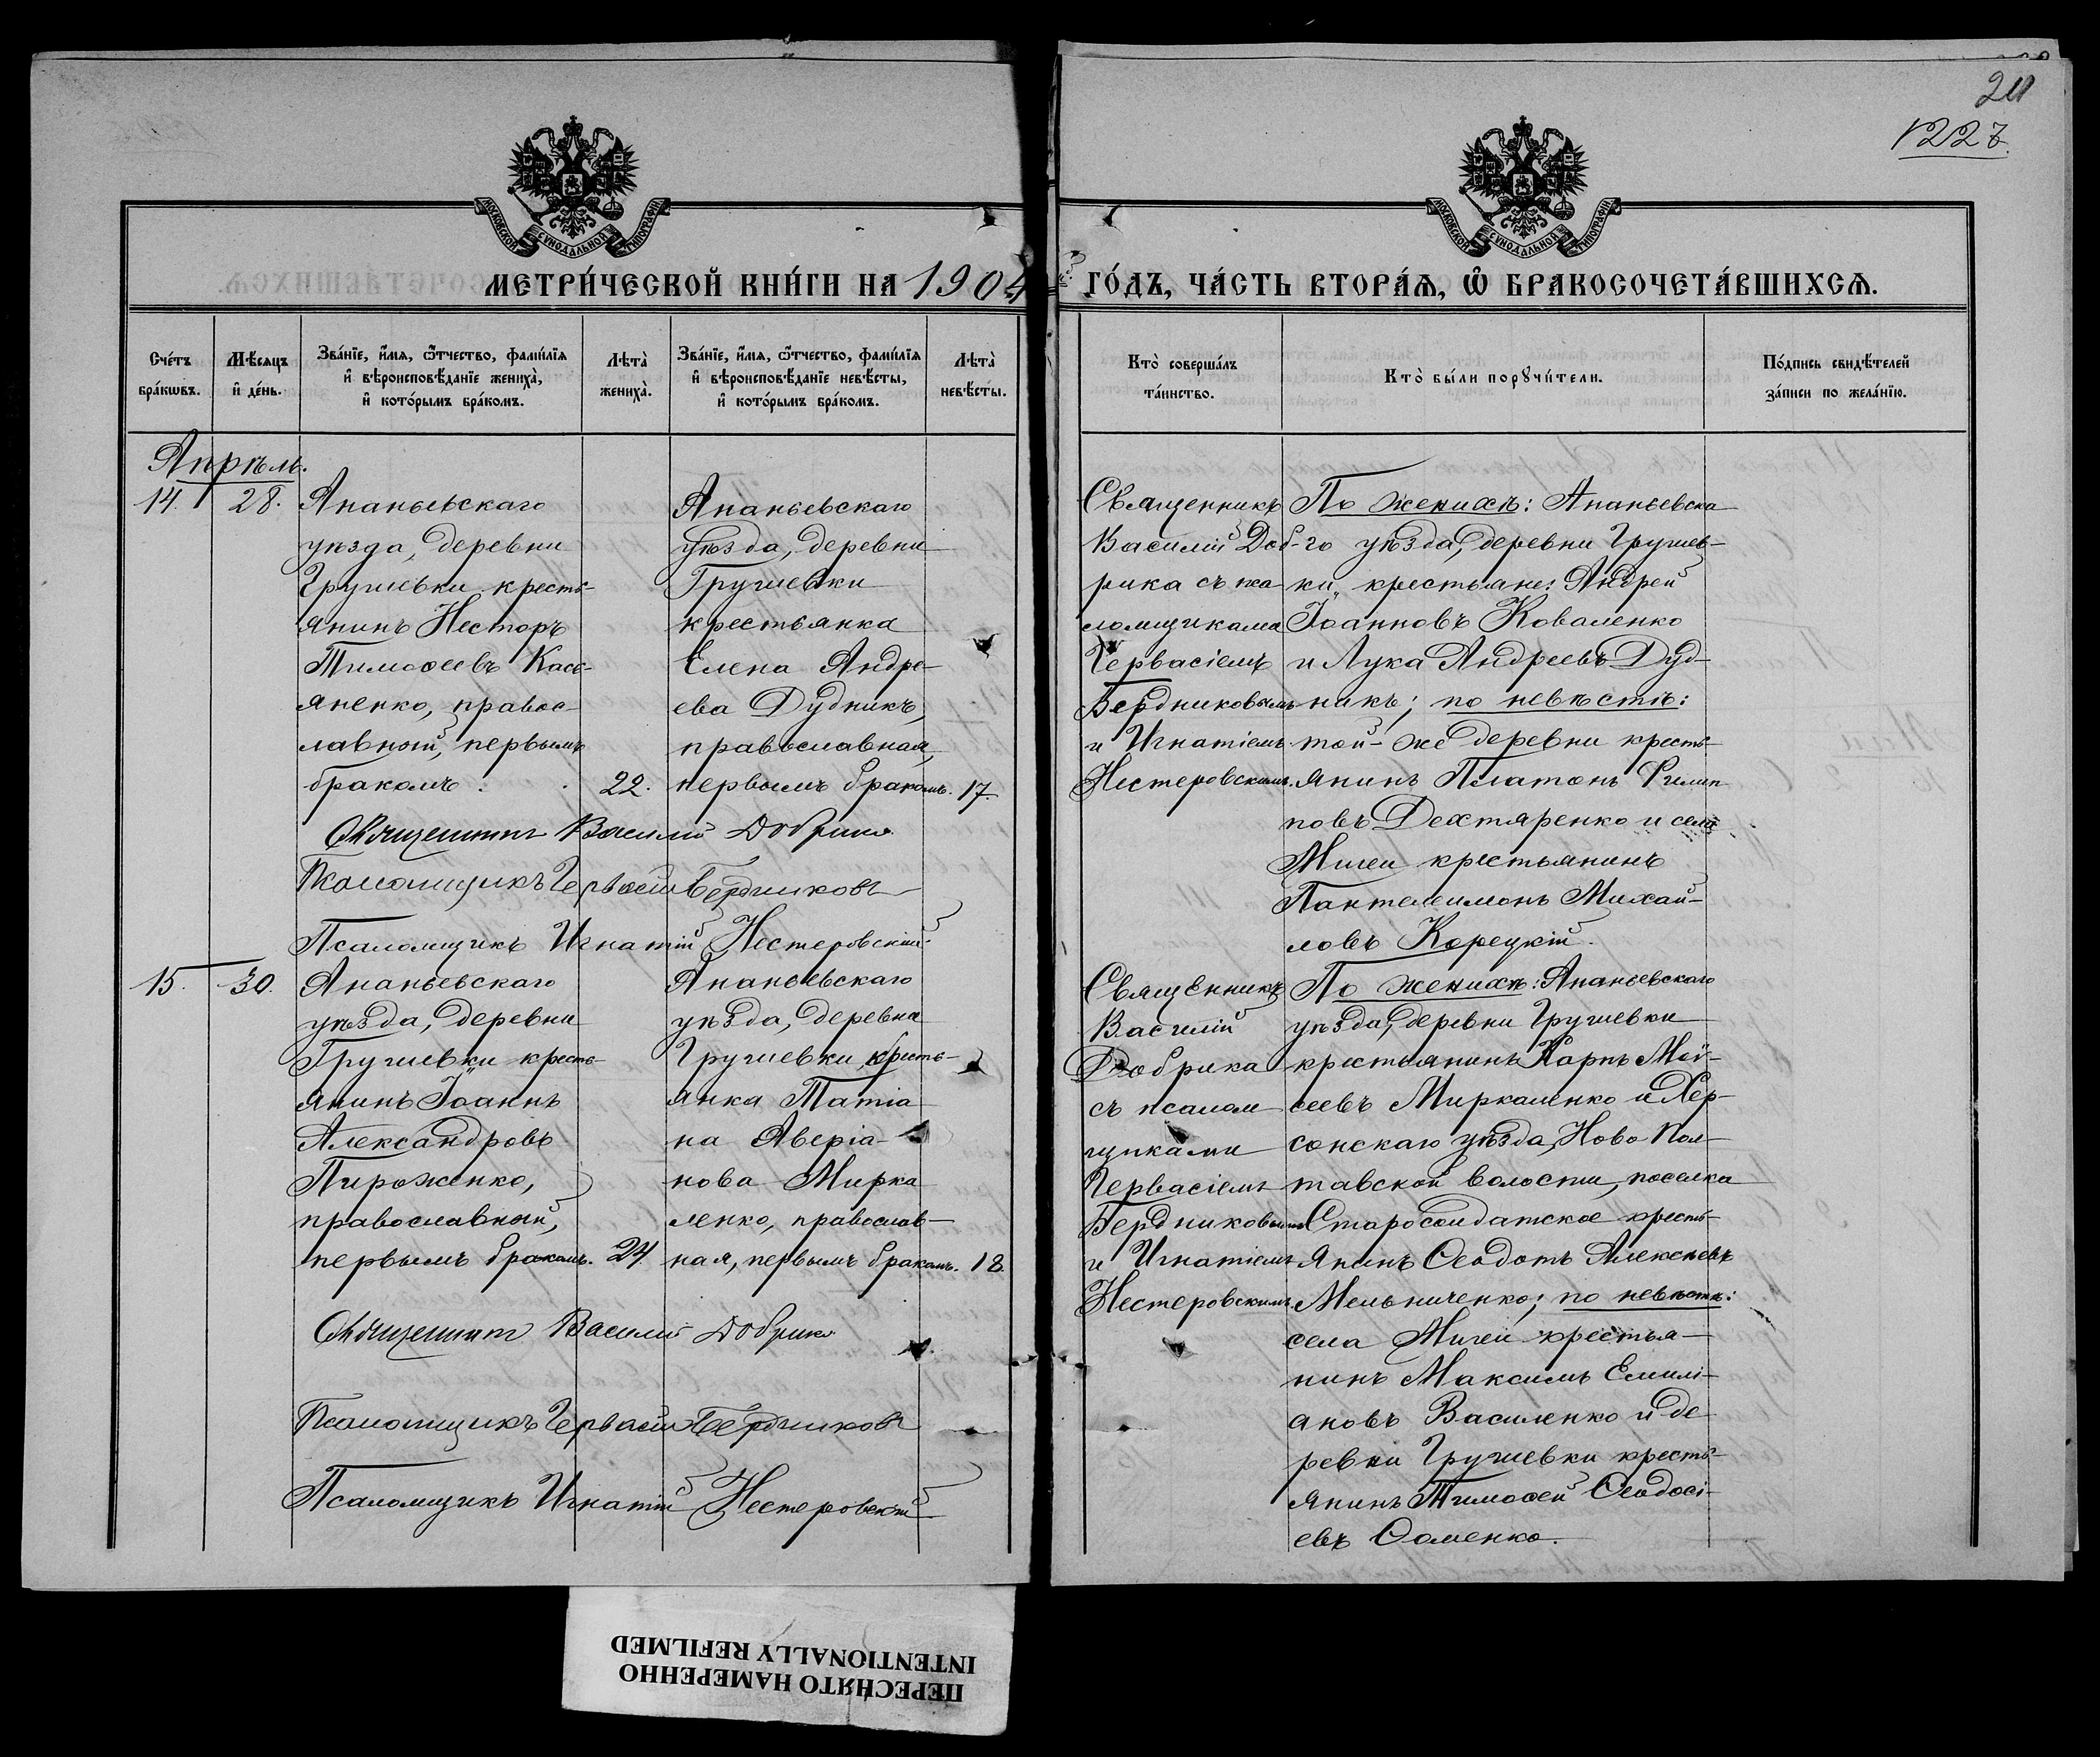 211
1227.
МОСКОВСКОЙ СѴНОДАЛЬНОЙ ТИПОГРАФІИ
МОСКОВСКОЙ СѴНОДАЛЬНОЙ ТИПОГРАФІИ
МЕТРИ́ЧЕСКОЙ КНИ́ГИ НА 1904
ГО́ДЪ, ЧА́СТЬ ВТОРА́Ѧ, Ѽ БРАКОСОЧЕТА́ВШИХСѦ.
Сче́тъ
бра́кѡвъ.
Мѣ́сяцъ
и҆ де́нь.
Зва́нїе, и҆́мя, ѻ҆́тчество, фами́лїя
и҆ вѣроисповѣ́данїе жениха̀,
и҆ кото́рымъ бра́комъ.
Лѣта̀
жениха̀.
Зва́нїе, и҆́мя, ѻ҆́тчество, фами́лїя
и҆ вѣроисповѣ́данїе невѣ́сты,
и҆ кото́рымъ бра́комъ.
Лѣта̀
невѣ́сты.
Кто̀ соверша́лъ
та́инство.
Кто̀ бы́ли порꙋчи́тели.
По́дпись свидѣ́телей
за́писи по жела́нїю.
Апрѣль.
14. 28.
Ананьевскаго
уѣзда, деревни
Грушевки кресть-
янинъ Несторъ
Тимоѳеевъ Кась-
яненко, правос-
лавный, первымъ
бракомъ. 22.
Ананьевскаго
уѣзда, деревни
Грушевки
крестьянка
Елена Андре-
ева Дудникъ,
православная,
первымъ бракомъ. 17.
Священникъ
Василій Доб-
рика съ пса
ломщиками
Гервасіемъ
Бердниковымъ
и Игнатіемъ
Нестеровскимъ.
По женихѣ: Ананьевска
го уѣзда, деревни Грушев-
ки, крестьяне: Андрей
Іоанновъ Коваленко
и Лука Андреевъ Дуд-
никъ; по невѣстѣ:
той-же деревни кресть-
янинъ Платонъ Филип
повъ Дехтяренко и села
Мигеи крестьянинъ
Пантелеимонъ Михай-
ловъ Корецкій.
Священникъ Василій Добрика
Псаломщикъ Гервасій Бердниковъ
Псаломщикъ Игнатій Нестеровскій.
15. 30.
Ананьевскаго
уѣзда, деревни
Грушевки кресть-
янинъ Іоаннъ
Александровъ
Пироженко,
православный,
первымъ бракомъ. 24.
Ананьевскаго
уѣзда, деревни
Грушевки, кресть-
янка Татіа
на Аверіа-
нова Мирка
ленко, православ-
ная, первымъ бракомъ. 18.
Священникъ
Василій
Добрика
съ псалом
щиками
Гервасіемъ
Бердниковымъ
и Игнатіемъ
Нестеровскимъ.
По женихѣ: Ананьевскаго
уѣзда, деревни Грушевки
крестьянинъ Карпъ Мої-
сеевъ Миркаленко и Хер-
сонскаго уѣзда, Ново Пол-
тавской волости, поселка
Старосолдатское кресть-
янинъ Ѳеодотъ Алексѣевъ
Мельниченко; по невѣстѣ:
села Мигеи крестья-
нинъ Максимъ Емилі-
ановъ Василенко и де
ревни Грушевки кресть-
янинъ Тимоѳей Ѳеодосі-
евъ Ѳоменко.
Священникъ Василій Добрика
Псаломщикъ Гервасій Бердниковъ
Псаломщикъ Игнатій Нестеровскій.
ПЕРЕСНЯТО НАМЕРЕННО
INTENTIONALLY REFILMED